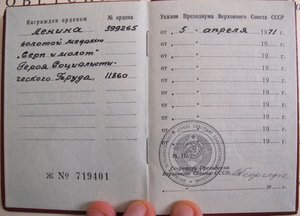 Награжден орденом № ордена
Ленина 399265
золотой медалью
„Серп и молот"
Героя Социалисти-
ческого Труда. 11860
Ж № 719401
Указом Президиума Верховного Совета СССР
от 5 апреля 1971 г.
от 19 г.
от 19 г.
от 19 г.
от 19 г.
от 19 г.
от 19 г.
от 19 г.
М. П.
Секретарь Президиума
Верховного Совета СССР